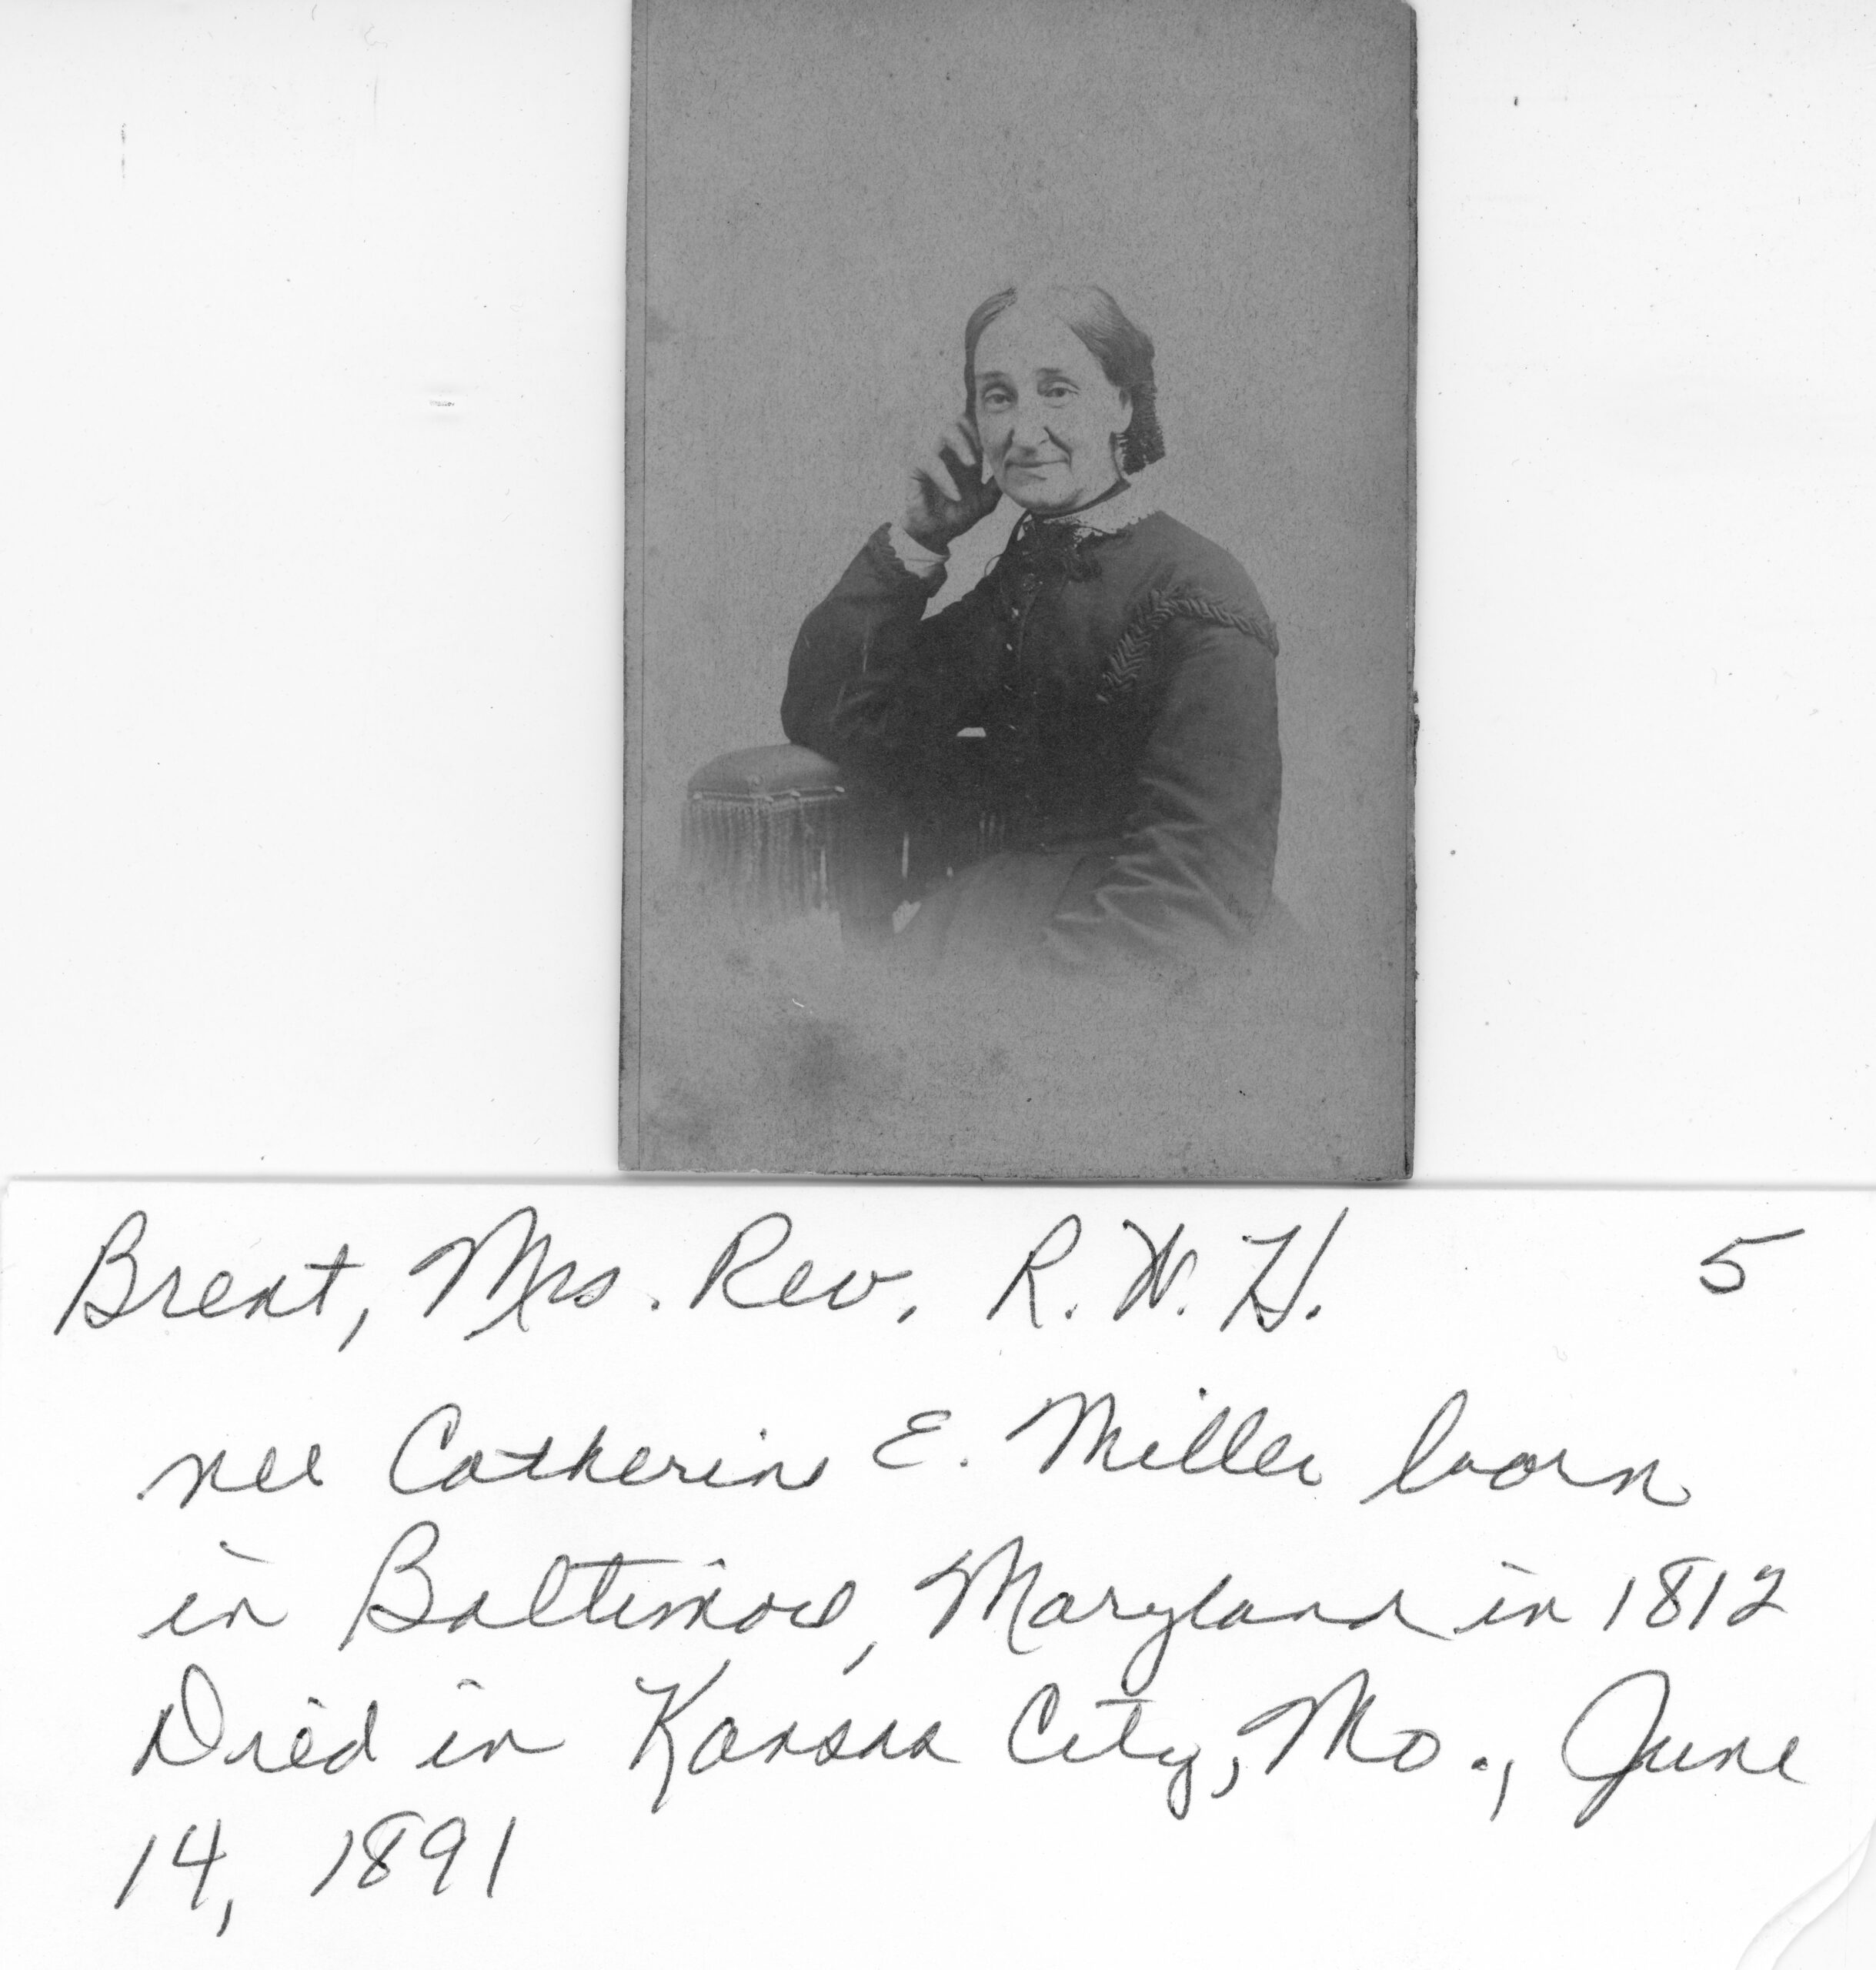 Brent, Mrs. Rev. R. W. H. 5
nee Catherine E. Miller born
in Baltimore, Maryland in 1812
Died in Kansas City, Mo., June
14, 1891